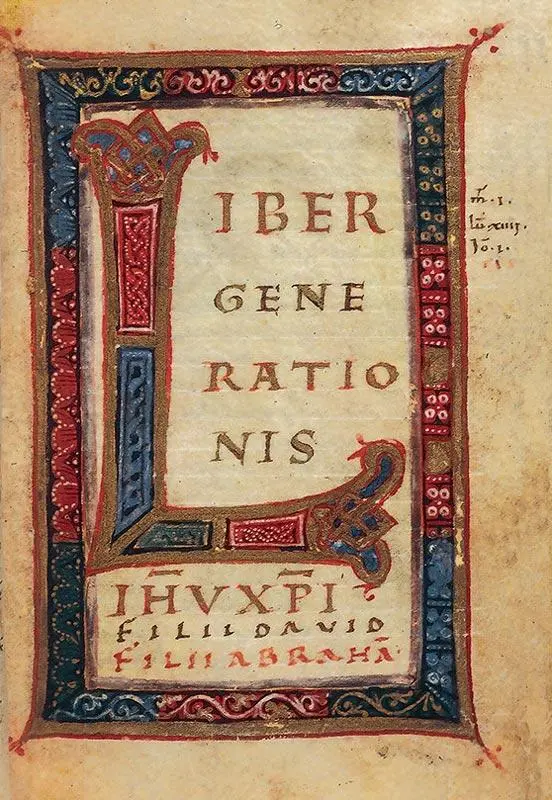 LIBER
GENE
RATIO
NIS
IH̄V XP̄I
FILII DAVID
FILII ABRAHĀ
m̄ · i ·
lū · xiiii ·
Jō · i ·